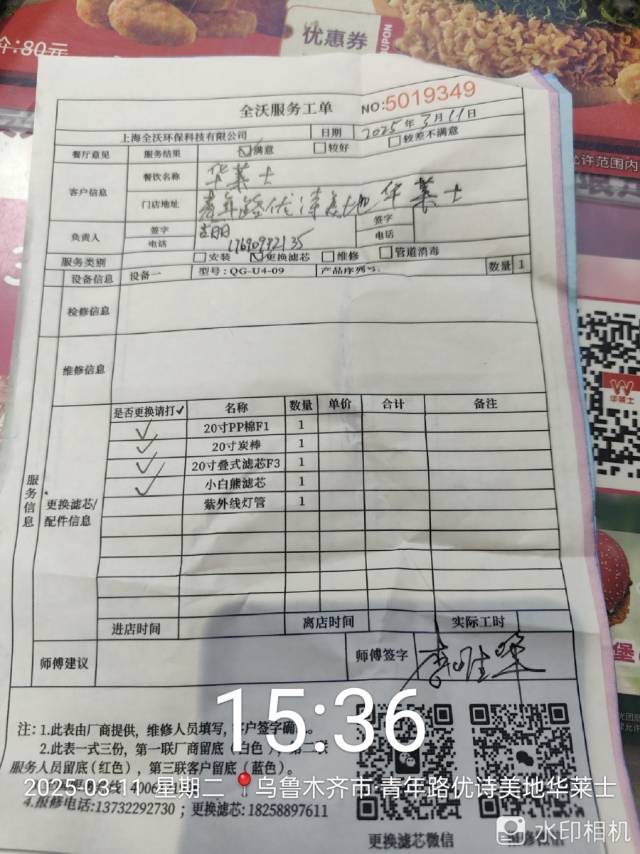 今:80元
优惠券
COUPON
全沃服务工单 NO:5019349
上海全沃环保科技有限公司 日期 2025年3月11日
餐厅意见 服务结果 ☑满意 □较好 □较差不满意
客户信息 餐饮名称 华莱士
门店地址 青年路优诗美地华莱士
负责人 签字 签字
电话 17690932135 电话
服务类别 □安装 ☑更换滤芯 □维修 □管道消毒
设备信息 设备一 型号:QG-U4-09 产品序列号: 数量 1
检修信息
维修信息
服务信息
更换滤芯/配件信息
是否更换请打✓ 名称 数量 单价 合计 备注
✓ 20寸PP棉F1 1
✓ 20寸炭棒 1
✓ 20寸叠式滤芯F3 1
✓ 小白熊滤芯 1
紫外线灯管 1
进店时间 离店时间 实际工时
师傅建议 师傅签字
15:36
注: 1.此表由厂商提供，维修人员填写，客户签字确
2.此表一式三份，第一联厂商留底（白色），第二联
服务人员留底(红色)，第三联客户留底（蓝色）。
2025-03-11 星期二 乌鲁木齐市·青年路优诗美地华莱士
4.报修电话:13732292730；更换滤芯:18258897611
更换滤芯微信
水印相机
华莱士
允许范围内
堡